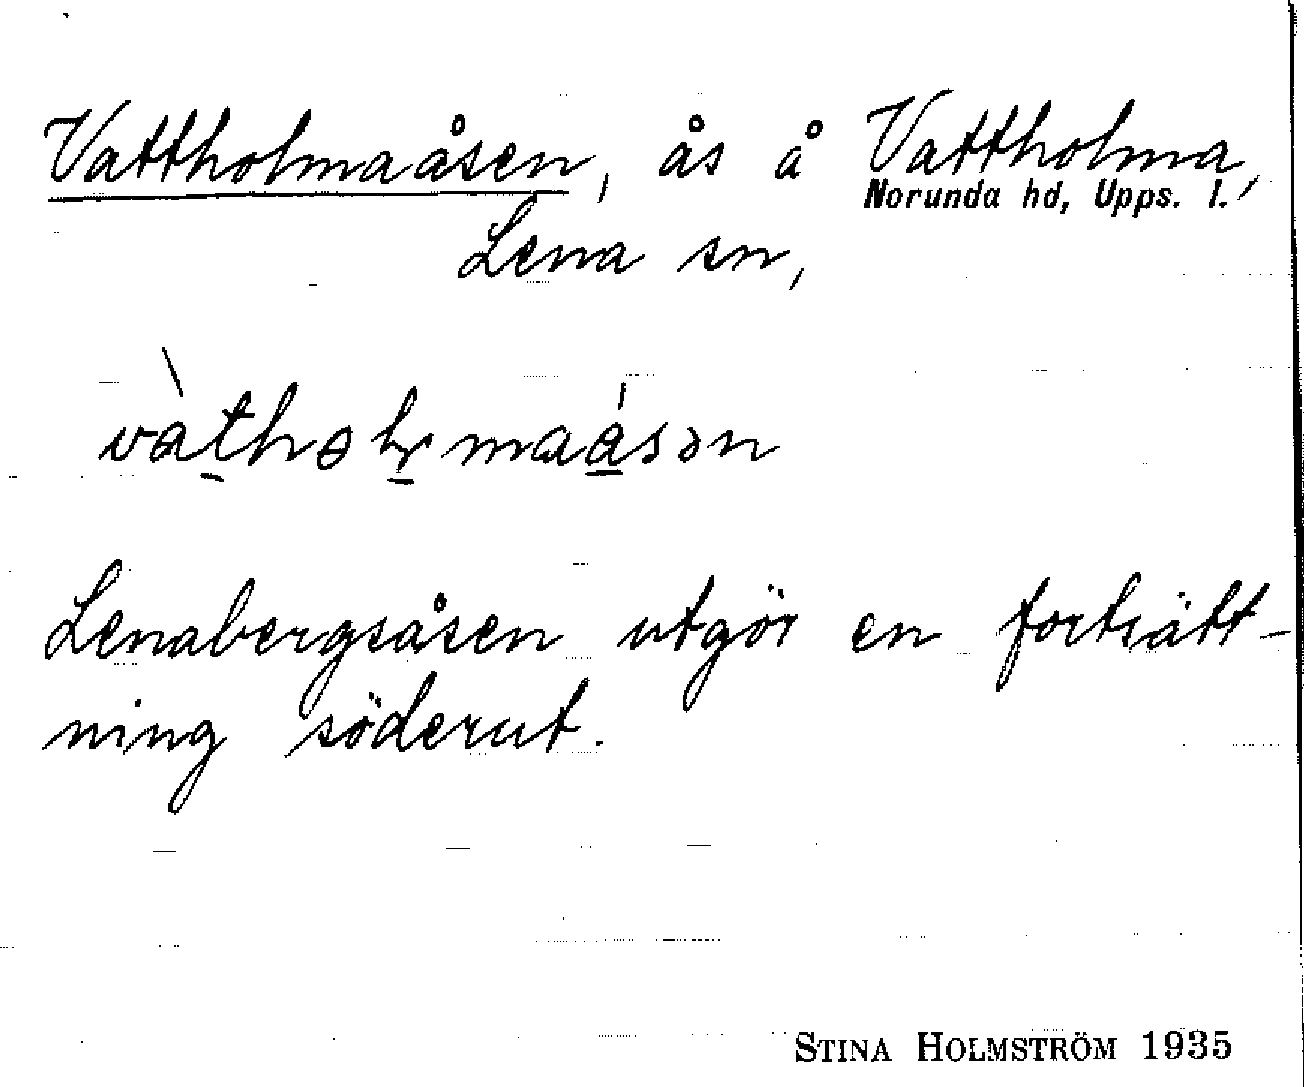 Vattholmaåsen, ås å Vattholma,
Norunda hd, Upps. l.
Lena sn,
Lenabergsåsen utgör en fortsätt-
ning söderut.
STINA HOLMSTRÖM 1935